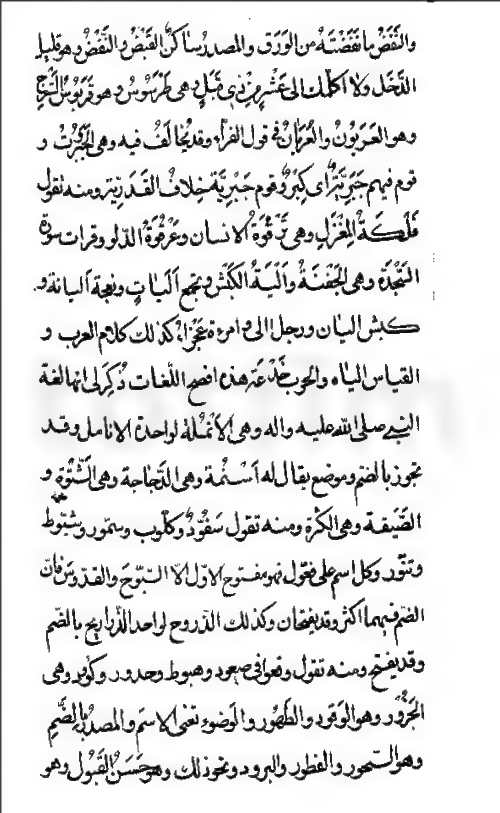 والنفض ما نفضته من الورق والمصدر ساكن القبض والنفض وهو قليل
الدخل ولا اكلمك الى عشر من ذي قبل وهى طرسوس وهو قربوس السرج
وهو العربون والعربان فى قول الفراء وقد يخالف فيه وهى الجبروت و
قوم فيهم جبرية اى كبر وقوم جبرية خلاف القدرية ومنه تقول
فلكة المغزل وهى ترقوة الانسان وعرقوة الدلو وقرات سورة
السجدة وهى الجفنة والية الكبش وتجمع اليات ونعجة اليانة و
كبش اليان ورجل الى وامرءة عجزاء كذلك كلام العرب و
القياس الياء والحرب خدعة هذه افصح اللغات ذكر لى انها لغة
النبى صلى الله عليه واله وهى الانملة لواحدة الانامل وقد
تجوز بالضم وموضع يقال له اسنمة وهى الدجاجة وهى الشتوة و
الصيفة وهى الكثرة ومنه تقول سفود وكلوب وسمور وشبوط
وتنور وكل اسم على فعول فهو مفتوح الاول الا السبوح والقدوس فان
الضم فيهما اكثر وقد يفتحان وكذلك الذروح لواحد الذراريح بالضم
وقد يفتح ومنه تقول وقعوا فى صعود وهبوط وحدور وكؤد وهى
الجزور وهو الوقود والطهور والوضوء تعنى الاسم والمصدر بالضم
وهو السحور والفطور والبرود ونحو ذلك وهو حسن القبول وهو